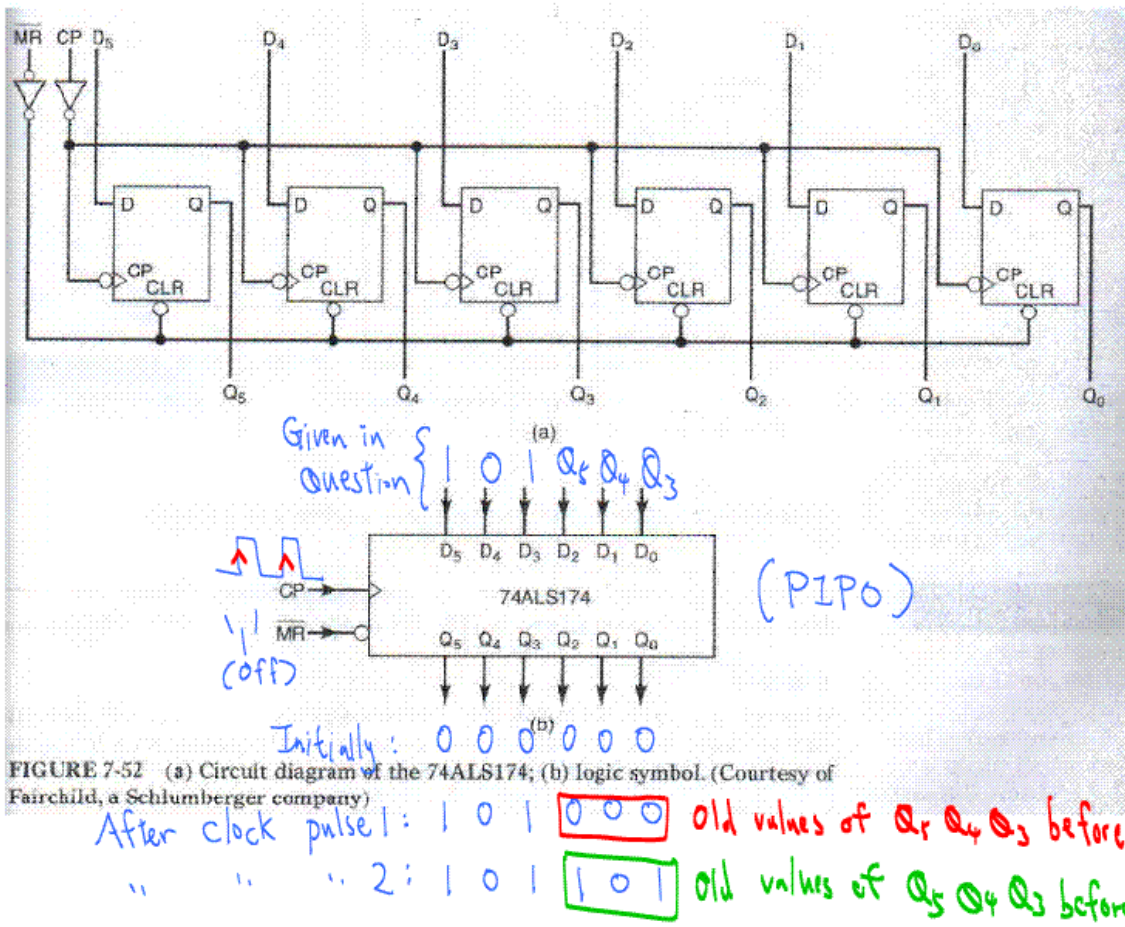 MR CP D5 D4 D3 D2 D1 D0
D Q D Q D Q D Q D Q D Q
CP CP CP CP CP CP
CLR CLR CLR CLR CLR CLR
Q5 Q4 Q3 Q2 Q1 Q0
(a)
Given in
Question { 1 0 1 Q5 Q4 Q3
D5 D4 D3 D2 D1 D0
CP 74ALS174 (PIPO)
'1' MR Q5 Q4 Q3 Q2 Q1 Q0
(off)
(b)
Initially: 0 0 0 0 0 0
FIGURE 7-52 (a) Circuit diagram of the 74ALS174; (b) logic symbol. (Courtesy of
Fairchild, a Schlumberger company)
After clock pulse 1: 1 0 1 0 0 0 Old values of Q5 Q4 Q3 before
" " " 2: 1 0 1 1 0 1 Old values of Q5 Q4 Q3 before